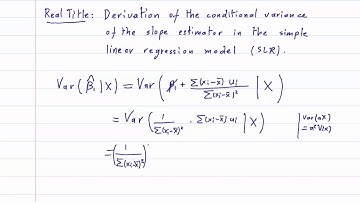 Real Title: Derivation of the conditional variance
of the slope estimator in the simple
linear regression model (SLR).
Var(β̂₁|X) = Var(β₁ + Σ(xᵢ-x̄)uᵢ / Σ(xᵢ-x̄)² | X)
= Var(1 / Σ(xᵢ-x̄)² · Σ(xᵢ-x̄)uᵢ | X)
Var(aX)
= a²V(x)
= (1 / Σ(xᵢ-x̄)²)